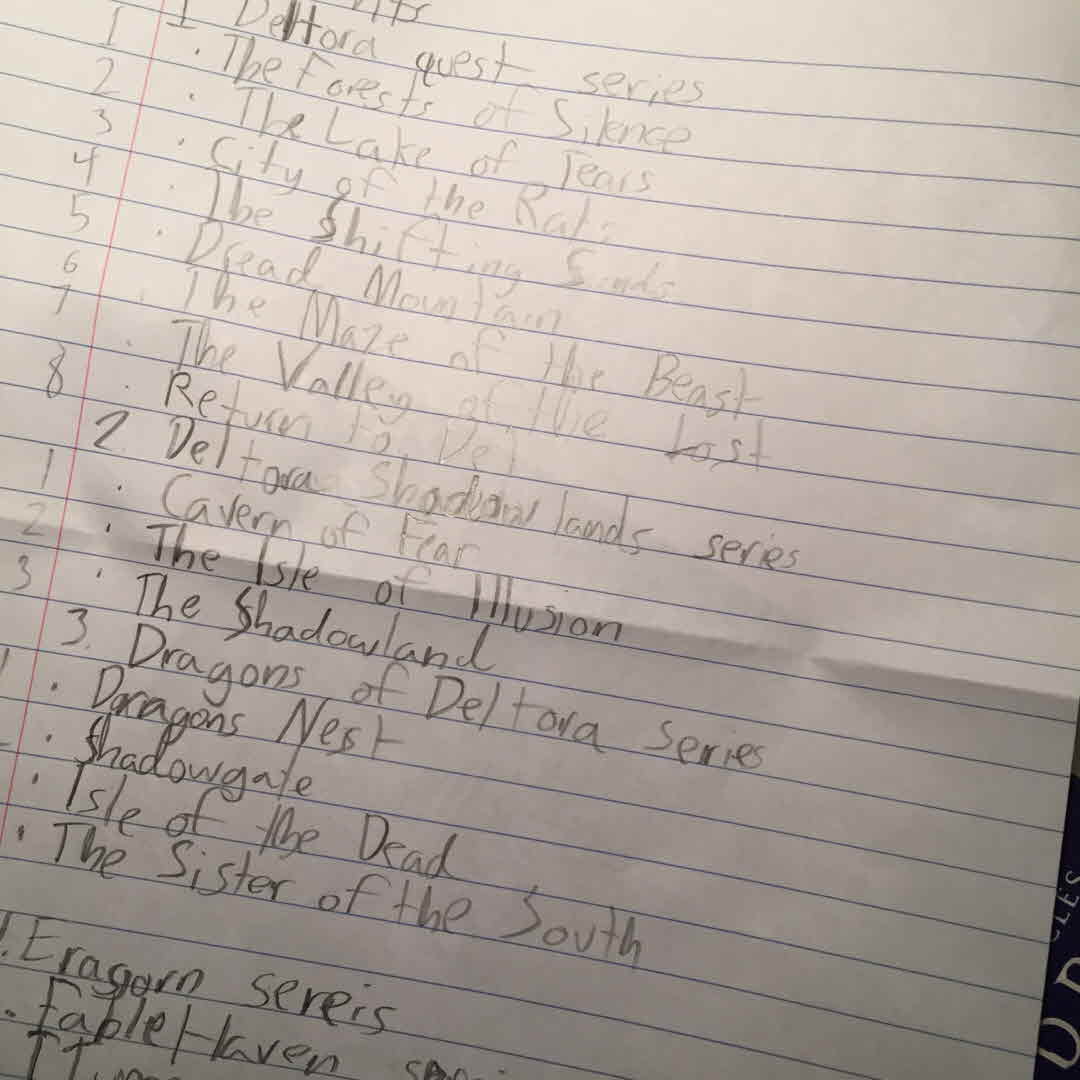 1 Deltora quest series
1 · The Forests of Silence
2 · The Lake of Tears
3 · City of the Rats
4 · The Shifting Sands
5 · Dread Mountain
6 · The Maze of the Beast
7 · The Valley of the Lost
8 · Return to Del
2 Deltora Shadowlands series
1 · Cavern of Fear
2 · The Isle of Illusion
3 · The Shadowland
3. Dragons of Deltora series
· Dragons Nest
· Shadowgate
· Isle of the Dead
· The Sister of the South
Eragorn sereis
FableHaven